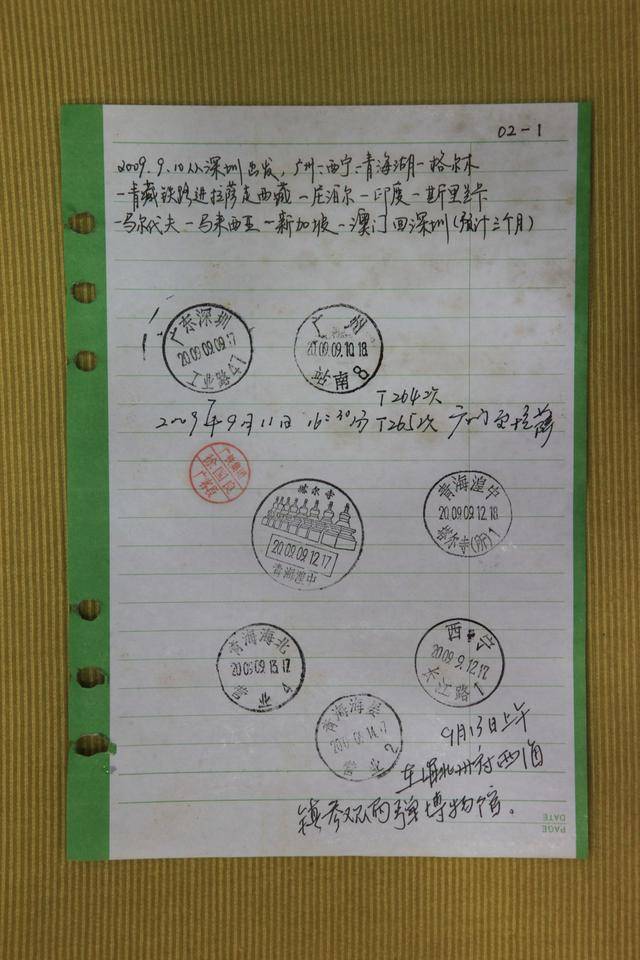 02-1
2009.9.10从深圳出发,广州-西宁-青海湖-格尔木
-青藏铁路进拉萨走西藏-尼泊尔-印度-斯里兰卡
-马尔代夫-马来西亚-新加坡-澳门回深圳(预计三个月)
广东深圳
2009.09.09.17
工业路47
广州
2009.09.10.18
站南8
T264次
2009年9月11日 16:30分 T265次 广州至拉萨
徐国良
塔尔寺
2009.09.12.17
青海湟中
青海湟中
2009.09.12.18
塔尔寺(所)1
青海海北
2009.09.13.17
营业4
西宁
2009.9.12.17
长江路1
青海海晏
2
9月13日上午
在海北州府西海
镇参观原子弹博物馆。
PAGE
DATE